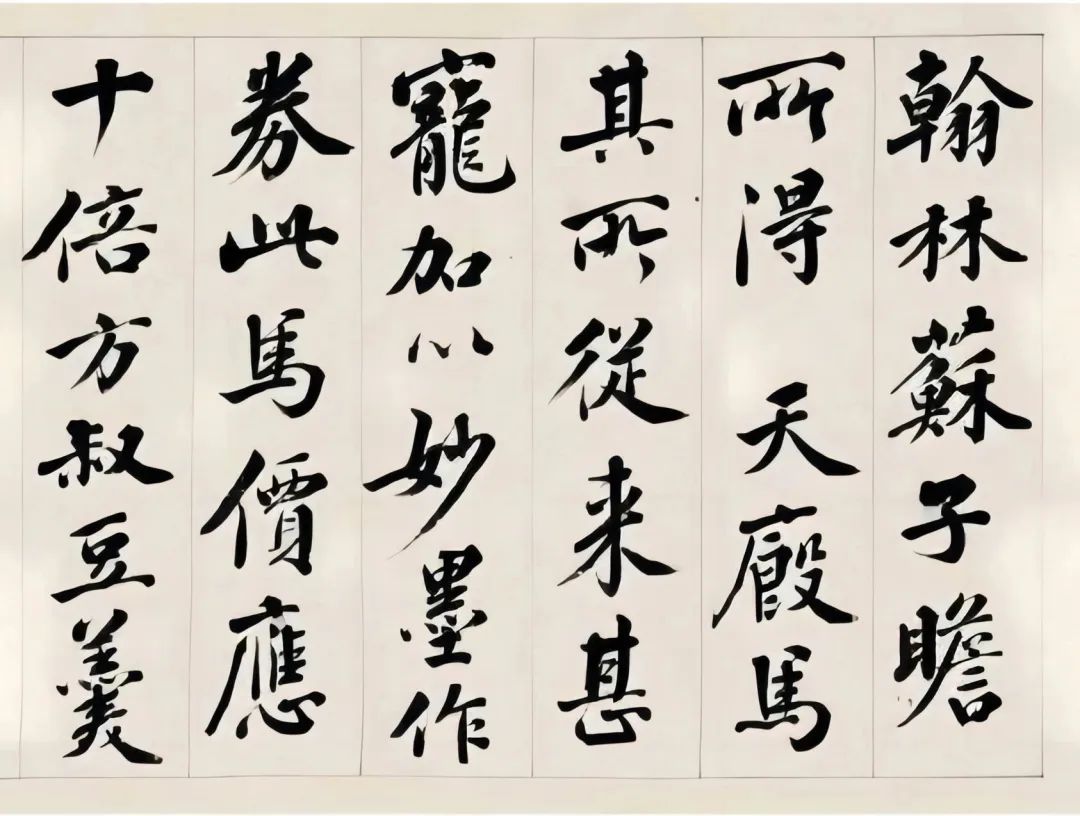 翰林蘇子瞻
所得 天廄馬
其所從来甚
寵加以妙墨作
券此馬價應
十倍方叔豆羹